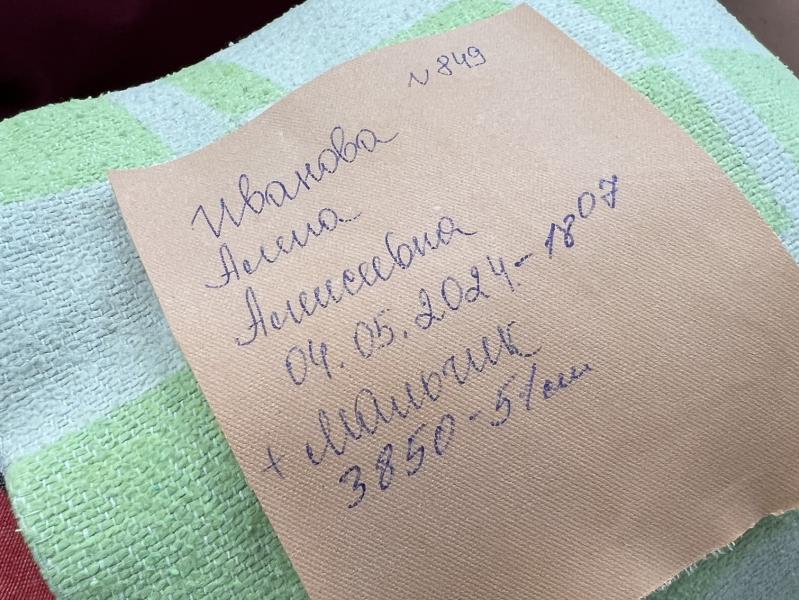 N 849
Иванова
Алена
Алексеевна
04.05.2024.-18 07
+ Мальчик
3850-51см